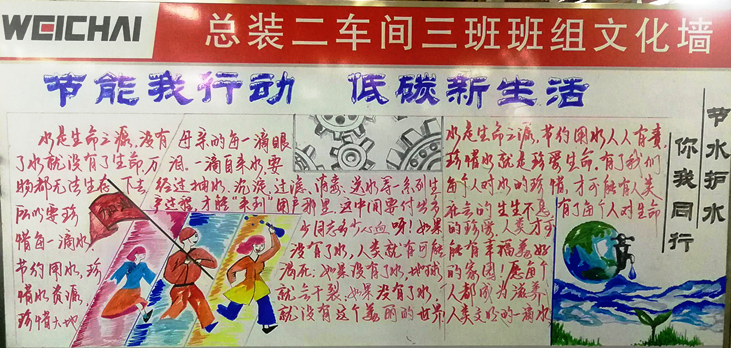 WEICHAI
总装二车间三班班组文化墙
节能我行动 低碳新生活
水是生命之源,没有
了水就没有了生命,万
物都无法生存下去
所以要珍
惜每一滴水,
节约用水,珍
惜水资源,
珍惜大地
母亲的每一滴眼
泪。一滴自来水,要
经过抽水、沉淀、过滤、消毒、送水等一系列生
产过程,才能“来到”用户那里,这中间要付出多
少同志多少心血呀!如果
没有了水,人类就有可能
渴死;如果没有了水,地球
就会干裂;如果没有了水,
就没有这个美丽的世界
水是生命之源,节约用水人人有责,
珍惜水就是珍爱生命,有了我们
每个人对水的珍惜,才可能有人类
社会的生生不息,有了每个人对生命
的珍爱,人类才
能有幸福美好
的家园!愿每个
人都成为滋养
人类文明的一滴水
节水护水
你我同行